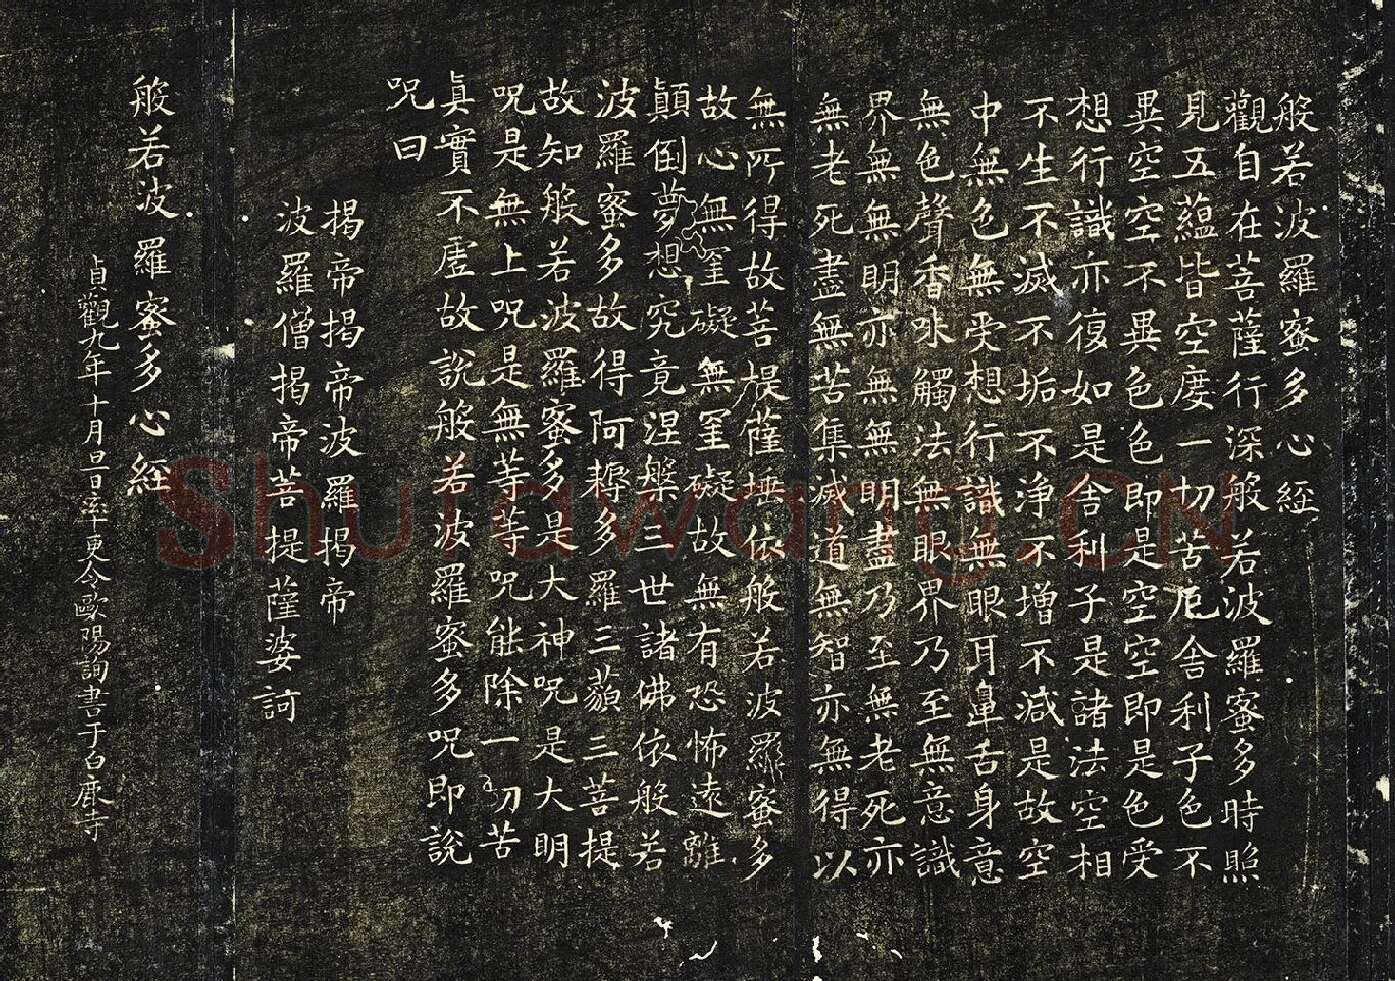 般若波羅蜜多心經
觀自在菩薩行深般若波羅蜜多時照
見五蘊皆空度一切苦厄舍利子色不
異空空不異色色即是空空即是色受
想行識亦復如是舍利子是諸法空相
不生不滅不垢不淨不增不減是故空
中無色無受想行識無眼耳鼻舌身意
無色聲香味觸法無眼界乃至無意識
界無無明亦無無明盡乃至無老死亦
無老死盡無苦集滅道無智亦無得以
無所得故菩提薩埵依般若波羅蜜多
故心無罣礙無罣礙故無有恐怖遠離
顛倒夢想究竟涅槃三世諸佛依般若
波羅蜜多故得阿耨多羅三藐三菩提
故知般若波羅蜜多是大神呪是大明
呪是無上呪是無等等呪能除一切苦
真實不虛故說般若波羅蜜多呪即說
呪曰
揭帝揭帝波羅揭帝
波羅僧揭帝菩提薩婆訶
般若波羅蜜多心經
貞觀九年十月旦日率更令歐陽詢書于白鹿寺
Shufawang.CN